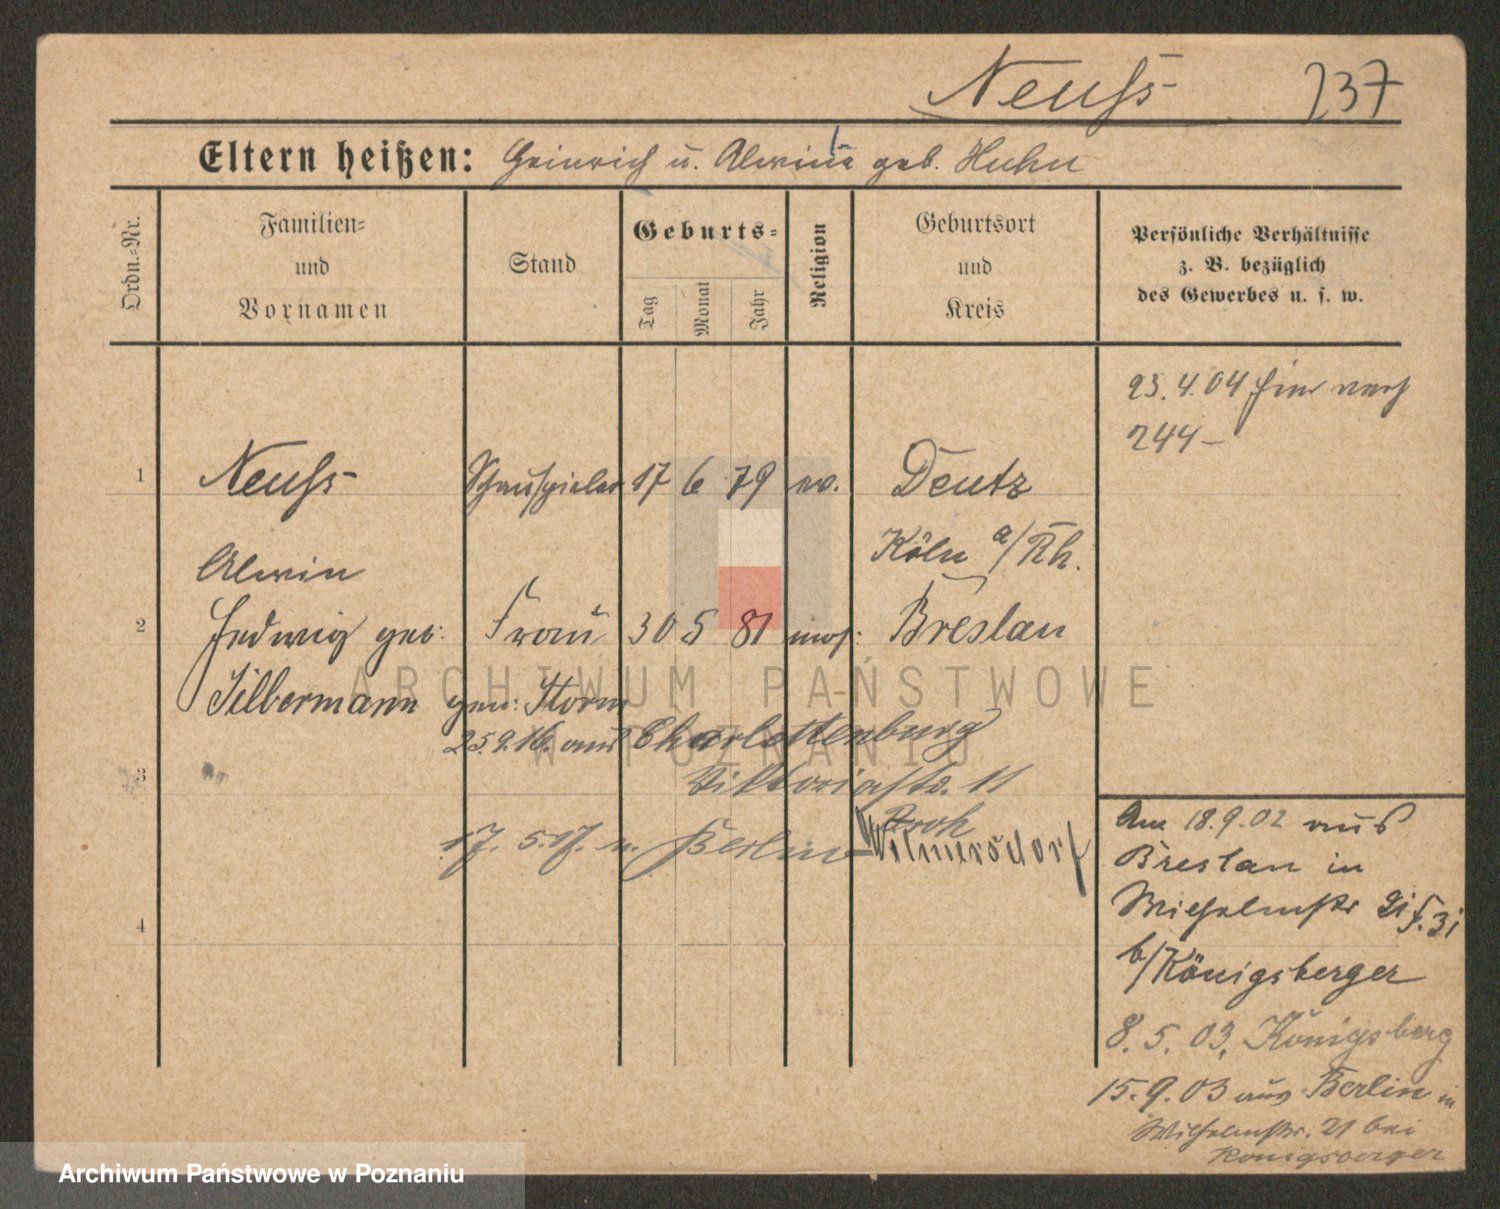 Neuß
237
Eltern heißen: Heinrich u. Alwine geb. Huhn
Ordn.=Nr.
Familien=
und
Vornamen
Stand
Geburts=
Tag
Monat
Jahr
Religion
Geburtsort
und
Kreis
Persönliche Verhältnisse
z. B. bezüglich
des Gewerbes u. s. w.
23.4.04 hier
244-
1 Neuß Schauspieler 17 6 79 ev. Deutz
Alwin Köln a/Rh.
2 Hedwig geb: Frau 30 5 81 mos: Breslau
Silbermann gen: Storm
25.9.16 aus Charlottenburg
Viktoriastr. 11
3
17. 5.17. n. Berlin-Wilmersdorf
4
Am 18.9.02 aus
Breslau in
Wilhelmstr 21
b/Königsberger
8. 5. 03. Königsberg
15.9.03 aus Berlin in
Wilhelmstr. 21 bei
Königsberger
ARCHIWUM PAŃSTWOWE
W POZNANIU
Archiwum Państwowe w Poznaniu